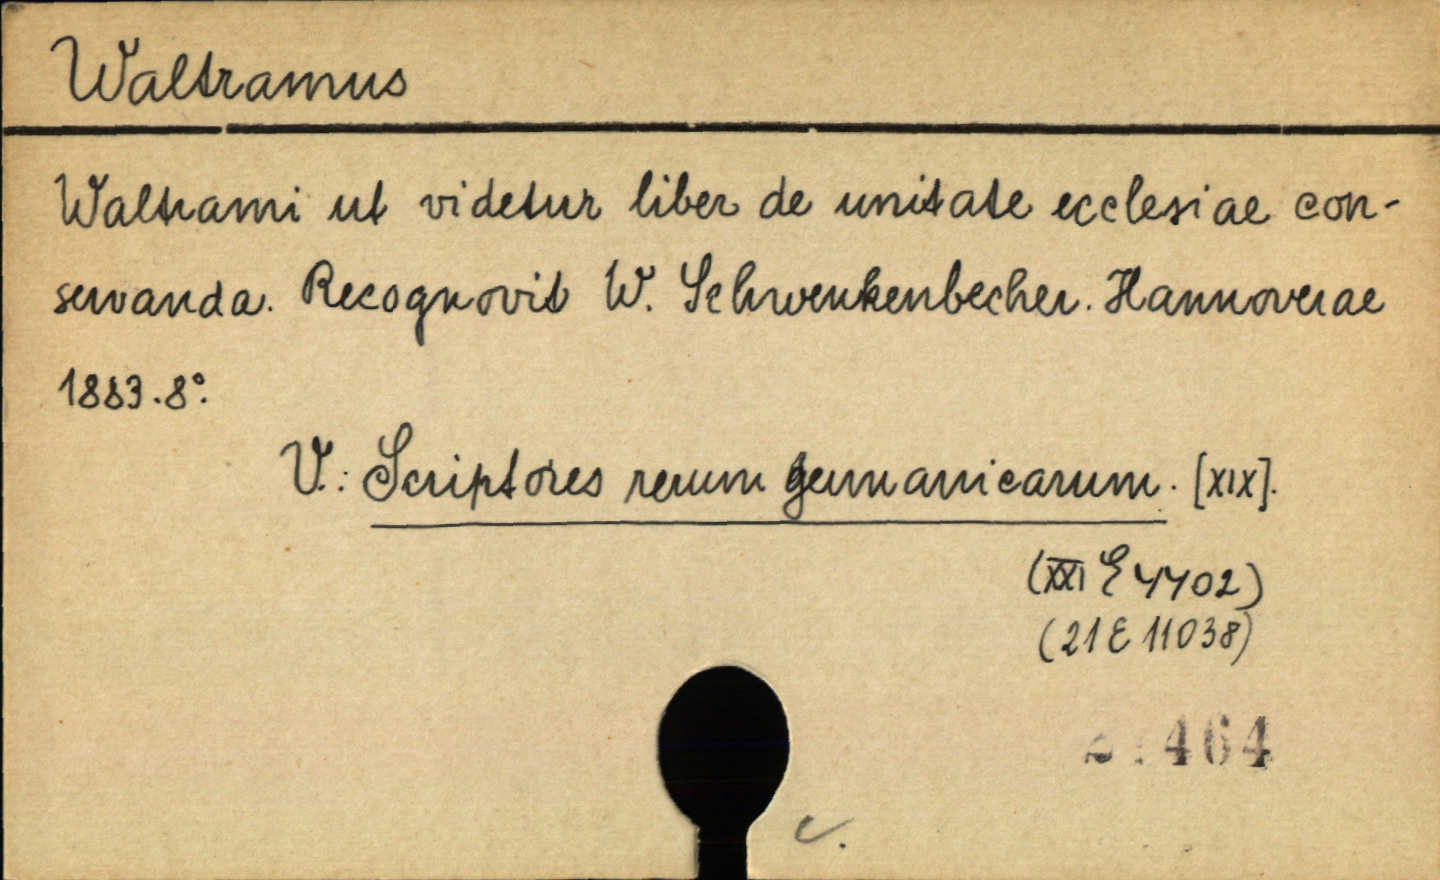 Waltramus
Waltrami ut videtur liber de unitate ecclesiae con-
servanda. Recognovit W. Schwenkenbecher. Hannoverae
1883. 8°.
V.: Scriptores rerum germanicarum. [XIX].
(XXI E 4402)
(21 E 11038)
464
c.